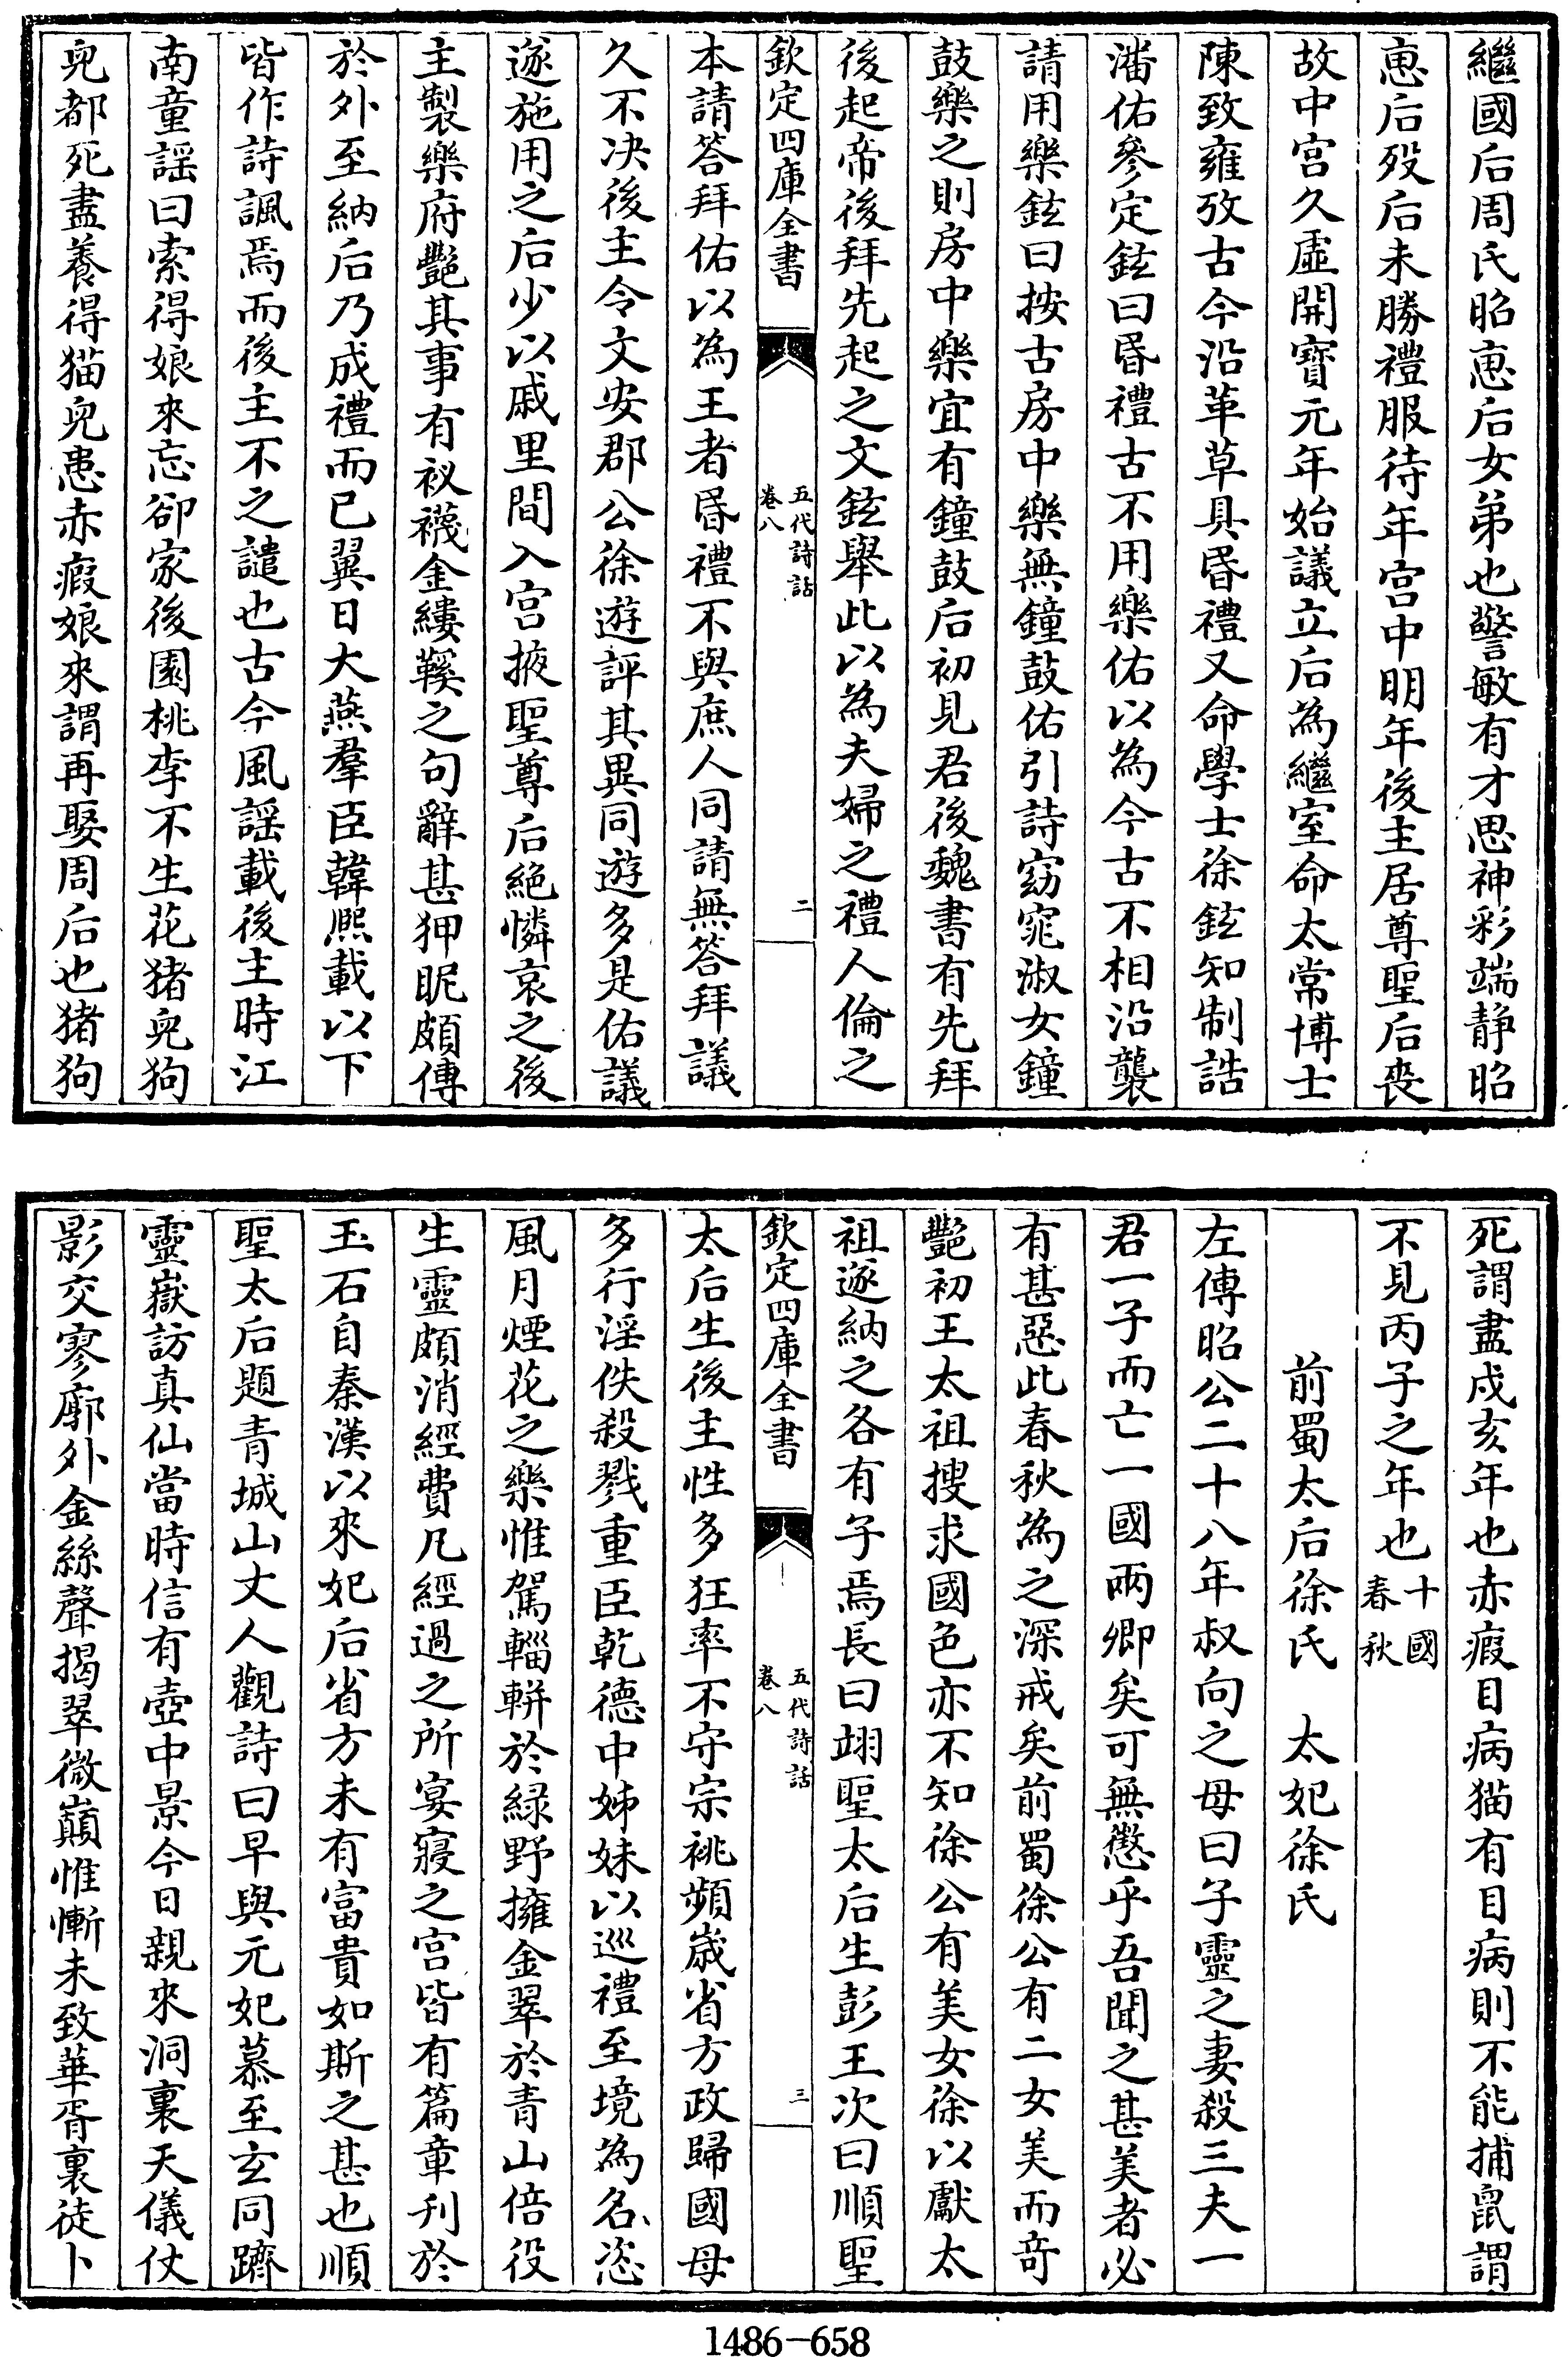 繼國后周氏昭恵后女弟也警敏有才思神彩端静昭
恵后殁后未勝禮服待年宫中明年後主居尊聖后喪
故中宫久虚開寳元年始議立后為繼室命太常博士
陳致雍攷古今沿革草具昏禮又命學士徐鉉知制誥
潘佑參定鉉曰昏禮古不用樂佑以為今古不相沿襲
請用樂鉉曰按古房中樂無鐘鼓佑引詩窈窕淑女鐘
鼓樂之則房中樂宜有鐘鼓后初見君後魏書有先拜
後起帝後拜先起之文鉉舉此以為夫婦之禮人倫之
欽定四庫全書
五代詩話
卷八
二
本請答拜佑以為王者昏禮不與庶人同請無答拜議
久不决後主令文安郡公徐遊評其異同遊多是佑議
遂施用之后少以戚里間入宫掖聖尊后絶憐哀之後
主製樂府艷其事有衩襪金縷鞵之句辭甚狎昵頗傳
於外至納后乃成禮而已翼日大燕羣臣韓熈載以下
皆作詩諷焉而後主不之譴也古今風謡載後主時江
南童謡曰索得娘來忘卻家後園桃李不生花猪兒狗
兒都死盡養得猫兒患赤瘕娘來謂再娶周后也猪狗
死謂盡戍亥年也赤瘕目病猫有目病則不能捕䑕謂
不見丙子之年也十國
春秋
前蜀太后徐氏　太妃徐氏
左傳昭公二十八年叔向之母曰子靈之妻殺三夫一
君一子而亡一國兩卿矣可無懲乎吾聞之甚美者必
有甚惡此春秋為之深戒矣前蜀徐公有二女美而竒
艷初王太祖搜求國色亦不知徐公有美女徐以獻太
祖遂納之各有子焉長曰翊聖太后生彭王次曰順聖
欽定四庫全書
五代詩話
卷八
三
太后生後主性多狂率不守宗祧頻歲省方政歸國母
多行淫佚殺戮重臣乾德中姊妹以巡禮至境為名恣
風月煙花之樂惟駕輜軿於緑野擁金翠於青山倍役
生靈頗消經費凡經過之所宴寢之宫皆有篇章刋於
玉石自秦漢以來妃后省方未有富貴如斯之甚也順
聖太后題青城山丈人觀詩曰早與元妃慕至玄同躋
靈嶽訪真仙當時信有壺中景今日親來洞裏天儀仗
影交寥廓外金絲聲揭翠微巔惟慚未致華胥裏徒卜
1486-658